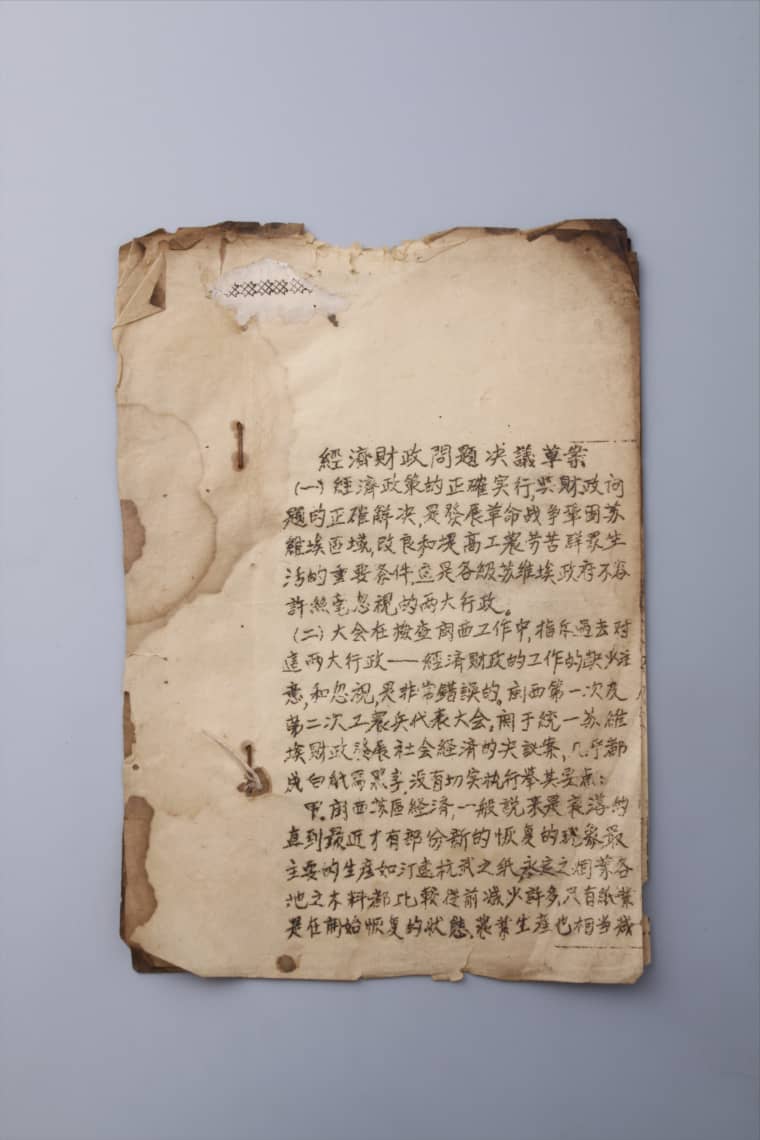 經濟財政問題決議草案
(一)經濟政策的正確实行,與財政问
題的正確解决,是發展革命战争鞏固苏
維埃區域,改良和提高工農劳苦群眾生
活的重要条件,這是各級苏維埃政府不容
許絲毫忽視的两大行政。
(二)大会在檢查闽西工作中,指斥過去对
這兩大行政——經濟財政的工作的缺少注
意,和忽視,是非常錯誤的。闽西第一次及
第二次工農兵代表大会,闹于統一苏維
埃財政發展社会經濟的决議案,几乎都
成白紙寫黑字沒有切实执行舉其要点:
甲.闽西苏區經濟,一般說來是衰落的
直到最近才有部份新的恢复的現象最
主要的生產如汀連杭武之紙永定之烟葉各
地之木料都比較從前減少許多,只有紙業
是在開始恢复的狀態,農業生產也相当減